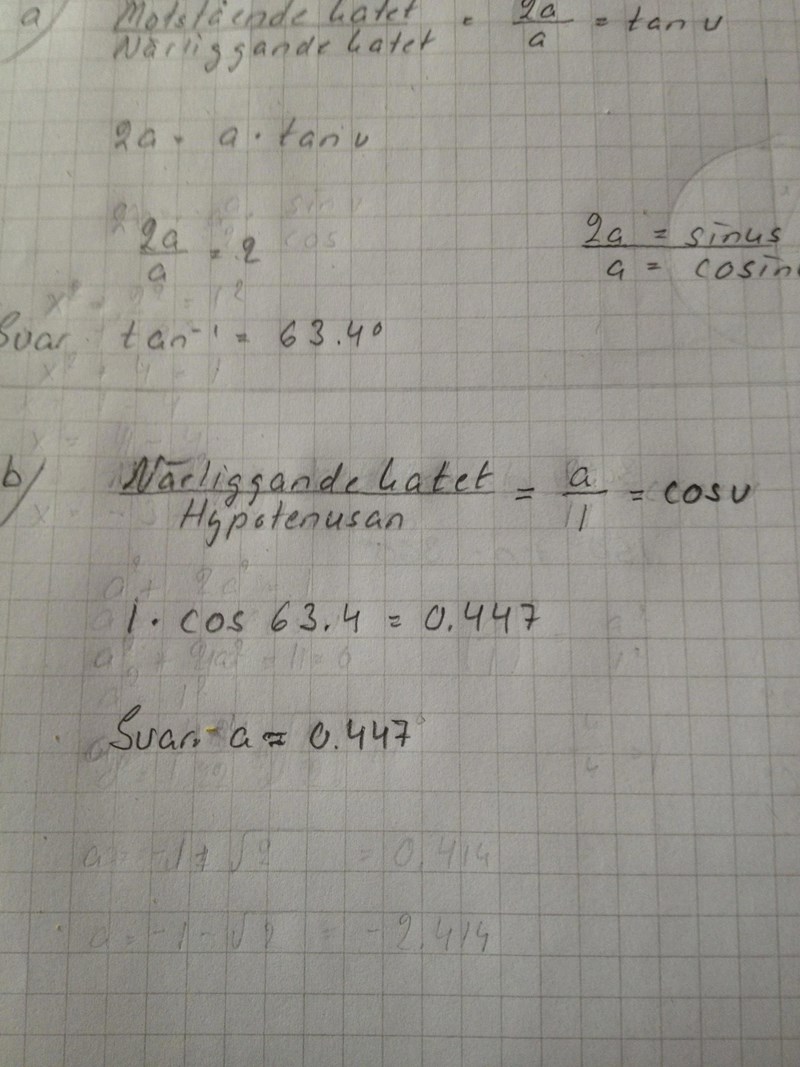 a) Motstående katet = 2a/a = tan v
Närliggande katet
2a = a · tan v
2a/a = 2
2a = sinus
a = cosin
Svar tan⁻¹ = 63.4°
b) Närliggande katet = a/1 = cos v
Hypotenusan
1 · cos 63.4 = 0.447
Svar a = 0.447
a = -1 + √2 = 0.414
a = -1 - √2 = -2.414